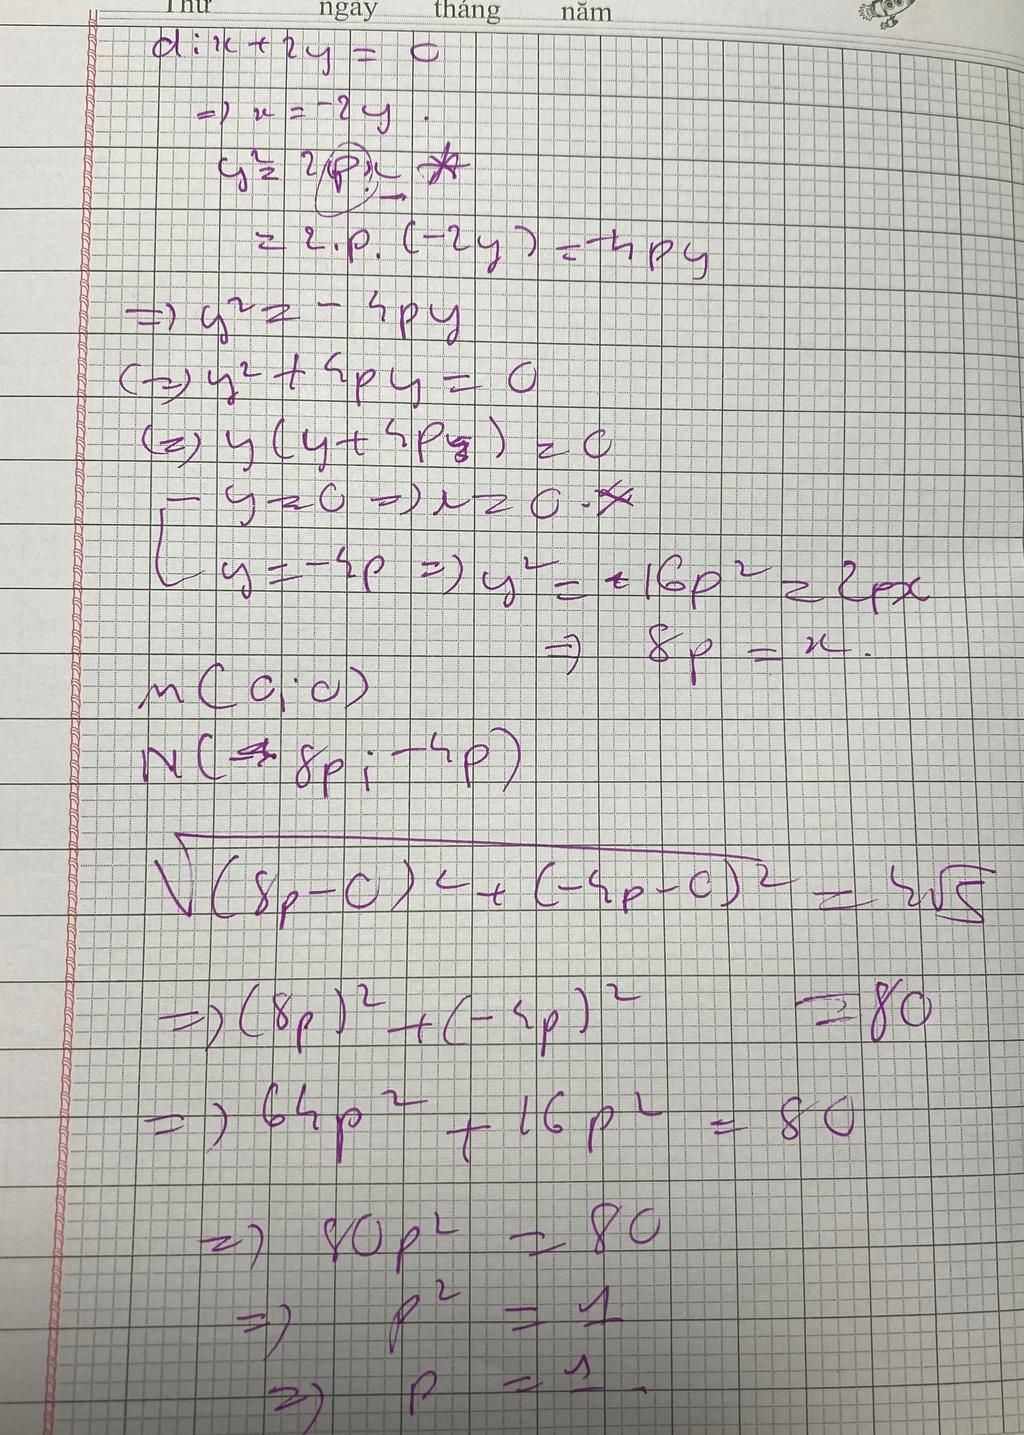 Thứ ngày tháng năm
d: x + 2y = 0
=> x = -2y.
y² = 2px *
= 2.p.(-2y) = -4py
=> y² = -4py
(=) y² + 4py = 0
(=) y(y + 4p) = 0
y = 0 => x = 0 . *
y = -4p => y² = 16p² = 2px
=> 8p = x.
M(0; 0)
N(8p; -4p)
√(8p - 0)² + (-4p - 0)² = 4√5
=> (8p)² + (-4p)² = 80
=> 64p² + 16p² = 80
=> 80p² = 80
=> p² = 1
=> p = 1.